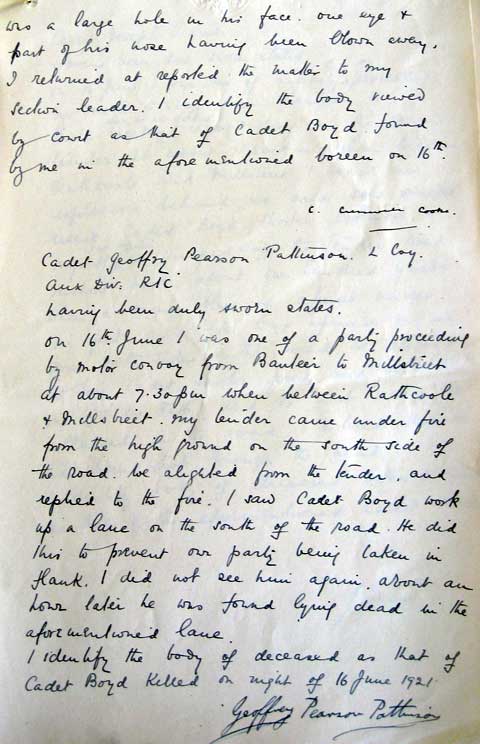 was a large hole in his face. one eye +
part of his nose having been blown away.
I returned at reported the matter to my
section leader. I identify the body viewed
by court as that of Cadet Boyd found
by me in the afore mentioned boreen on 16th.
C. Cooke.
Cadet Geoffry Pearson Pattinson. L Coy.
Aux Div: RIC.
having been duly sworn states.
on 16th June I was one of a party proceeding
by motor convoy from Banteer to Millstreet
at about 7.30pm when between Rathcoole
+ Millstreet. my tender came under fire
from the high ground on the south side of
the road. We alighted from the tender, and
replied to the fire. I saw Cadet Boyd work
up a lane on the south of the road. He did
this to prevent our party being taken in
flank. I did not see him again. about an
hour later he was found lying dead in the
aforementioned lane.
I identify the body of deceased as that of
Cadet Boyd killed on night of 16 June 1921.
Geoffry Pearson Pattinson